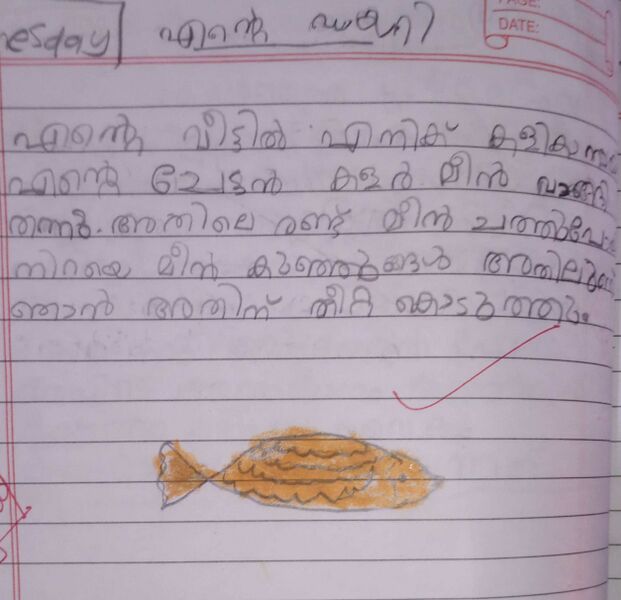 esday എന്റെ ഡയറി
DATE:
എന്റെ വീട്ടിൽ എനിക് കളികാൻ
എന്റെ ചേട്ടൻ കളർ മീൻ വാങ്ങി
തന്നു. അതിലെ രണ്ട് മീൻ ചത്തുപോ
നിറയെ മീൻ കുഞ്ഞുങ്ങൾ
ഞാൻ അതിന് തീറ്റ കൊടുത്തു.